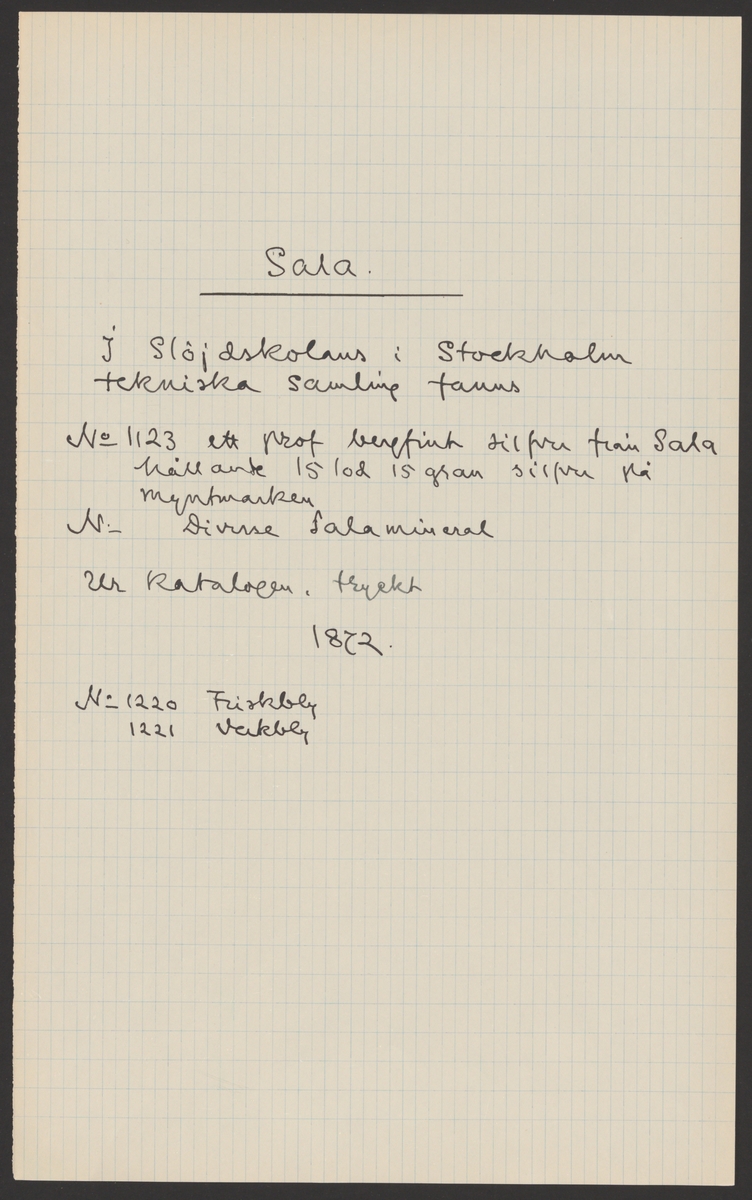 Sala.
I Slöjdskolans i Stockholm
tekniska samling fanns
No 1123 ett prof bergfint silfver från Sala
hållande 15 lod 15 gran silfver på
myntmarken
No Diverse Salamineral
Ur katalogen, tryckt
1872.
No 1220 Friskbly
1221 Verkbly